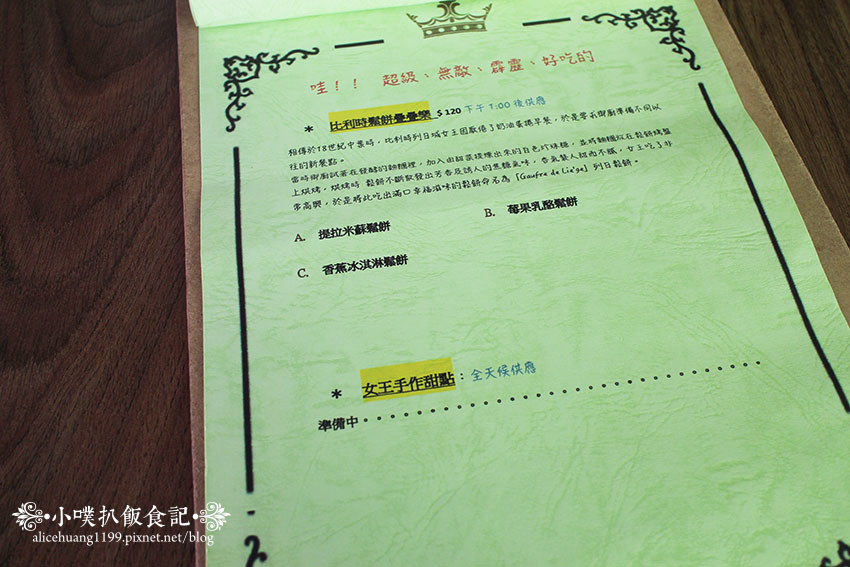 哇！！ 超級、無敵、霹靂、好吃的
* 比利時鬆餅疊疊樂 $120 下午 1:00 後供應
相傳於18世紀中葉時，比利時列日城女王因厭倦了奶油蛋捲早餐，於是要求御廚準備不同以
往的新餐點。
當時御廚試著在發酵的麵糰裡，加入由甜菜提煉出來的白色珍珠糖，並將麵糰放在鬆餅烤盤
上烘烤。烘烤時 鬆餅不斷散發出芳香及誘人的焦糖氣味，香氣襲人甜而不膩，女王吃了非
常高興，於是將此吃出滿口幸福滋味的鬆餅命名為「Gaufre de Lie'ge」列日鬆餅。
A. 提拉米蘇鬆餅 B. 莓果乳酪鬆餅
C. 香蕉冰淇淋鬆餅
* 女王手作甜點：全天候供應
準備中。。。。。。。。。。。。。。。。。。。。。。。。。。。
小噗扒飯食記
alicehuang1199.pixnet.net/blog